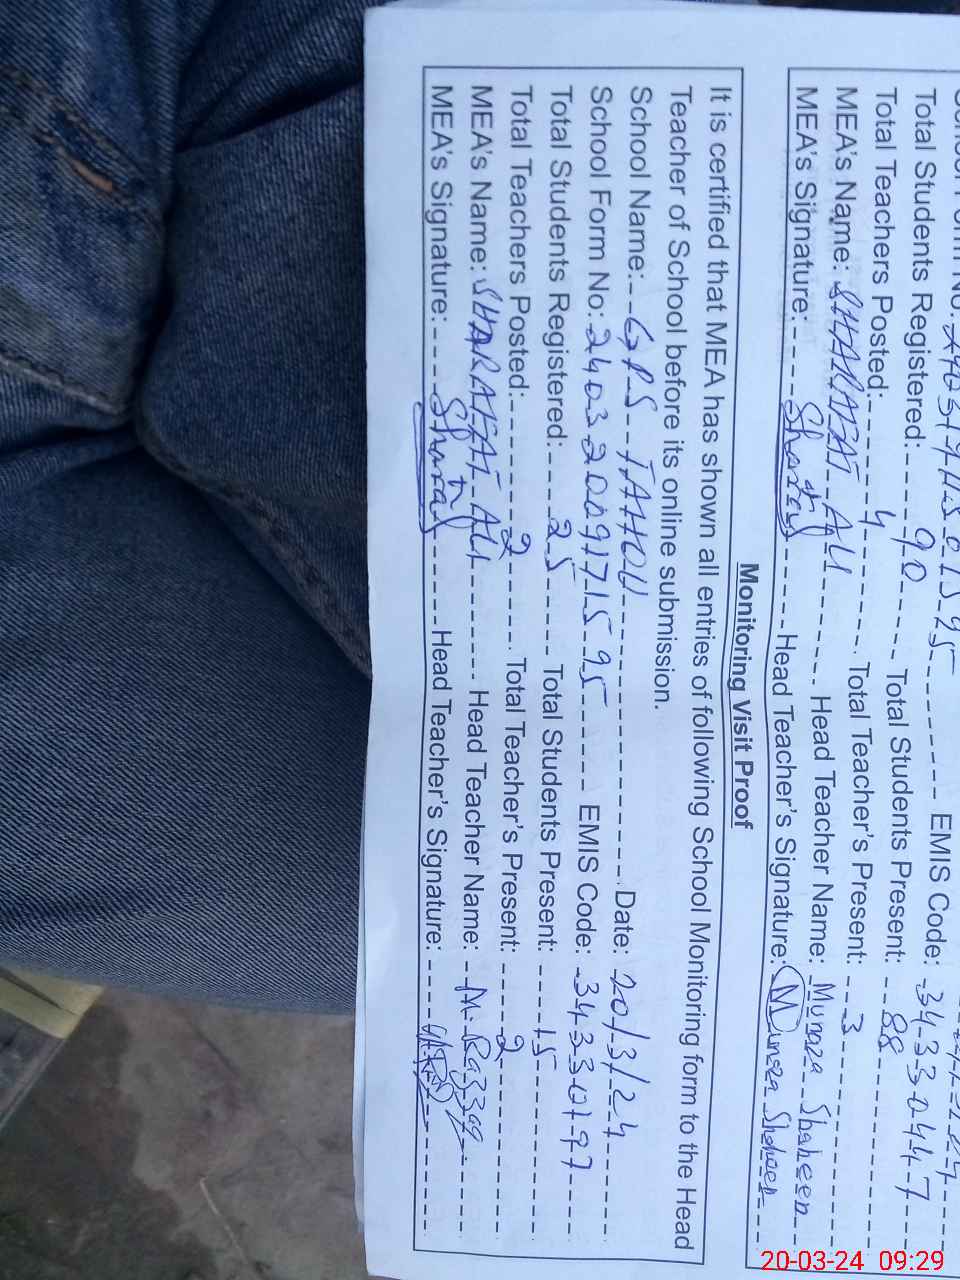 Total Students Registered: 90 Total Students Present: 88
Total Teachers Posted: 4 Total Teacher's Present: 3
MEA's Name: SHARAFAT ALI Head Teacher Name: Munaza Shaheen
MEA's Signature: Sharafat Head Teacher's Signature: Munaza Shaheen
Monitoring Visit Proof
It is certified that MEA has shown all entries of following School Monitoring form to the Head
Teacher of School before its online submission.
School Name: GPS TAHU Date: 20/3/24
School Form No: 24032009171595 EMIS Code: 34330197
Total Students Registered: 25 Total Students Present: 15
Total Teachers Posted: 2 Total Teacher's Present: 2
MEA's Name: SHARAFAT ALI Head Teacher Name: M. Razzaq
MEA's Signature: Sharafat Head Teacher's Signature:
20-03-24 09:29